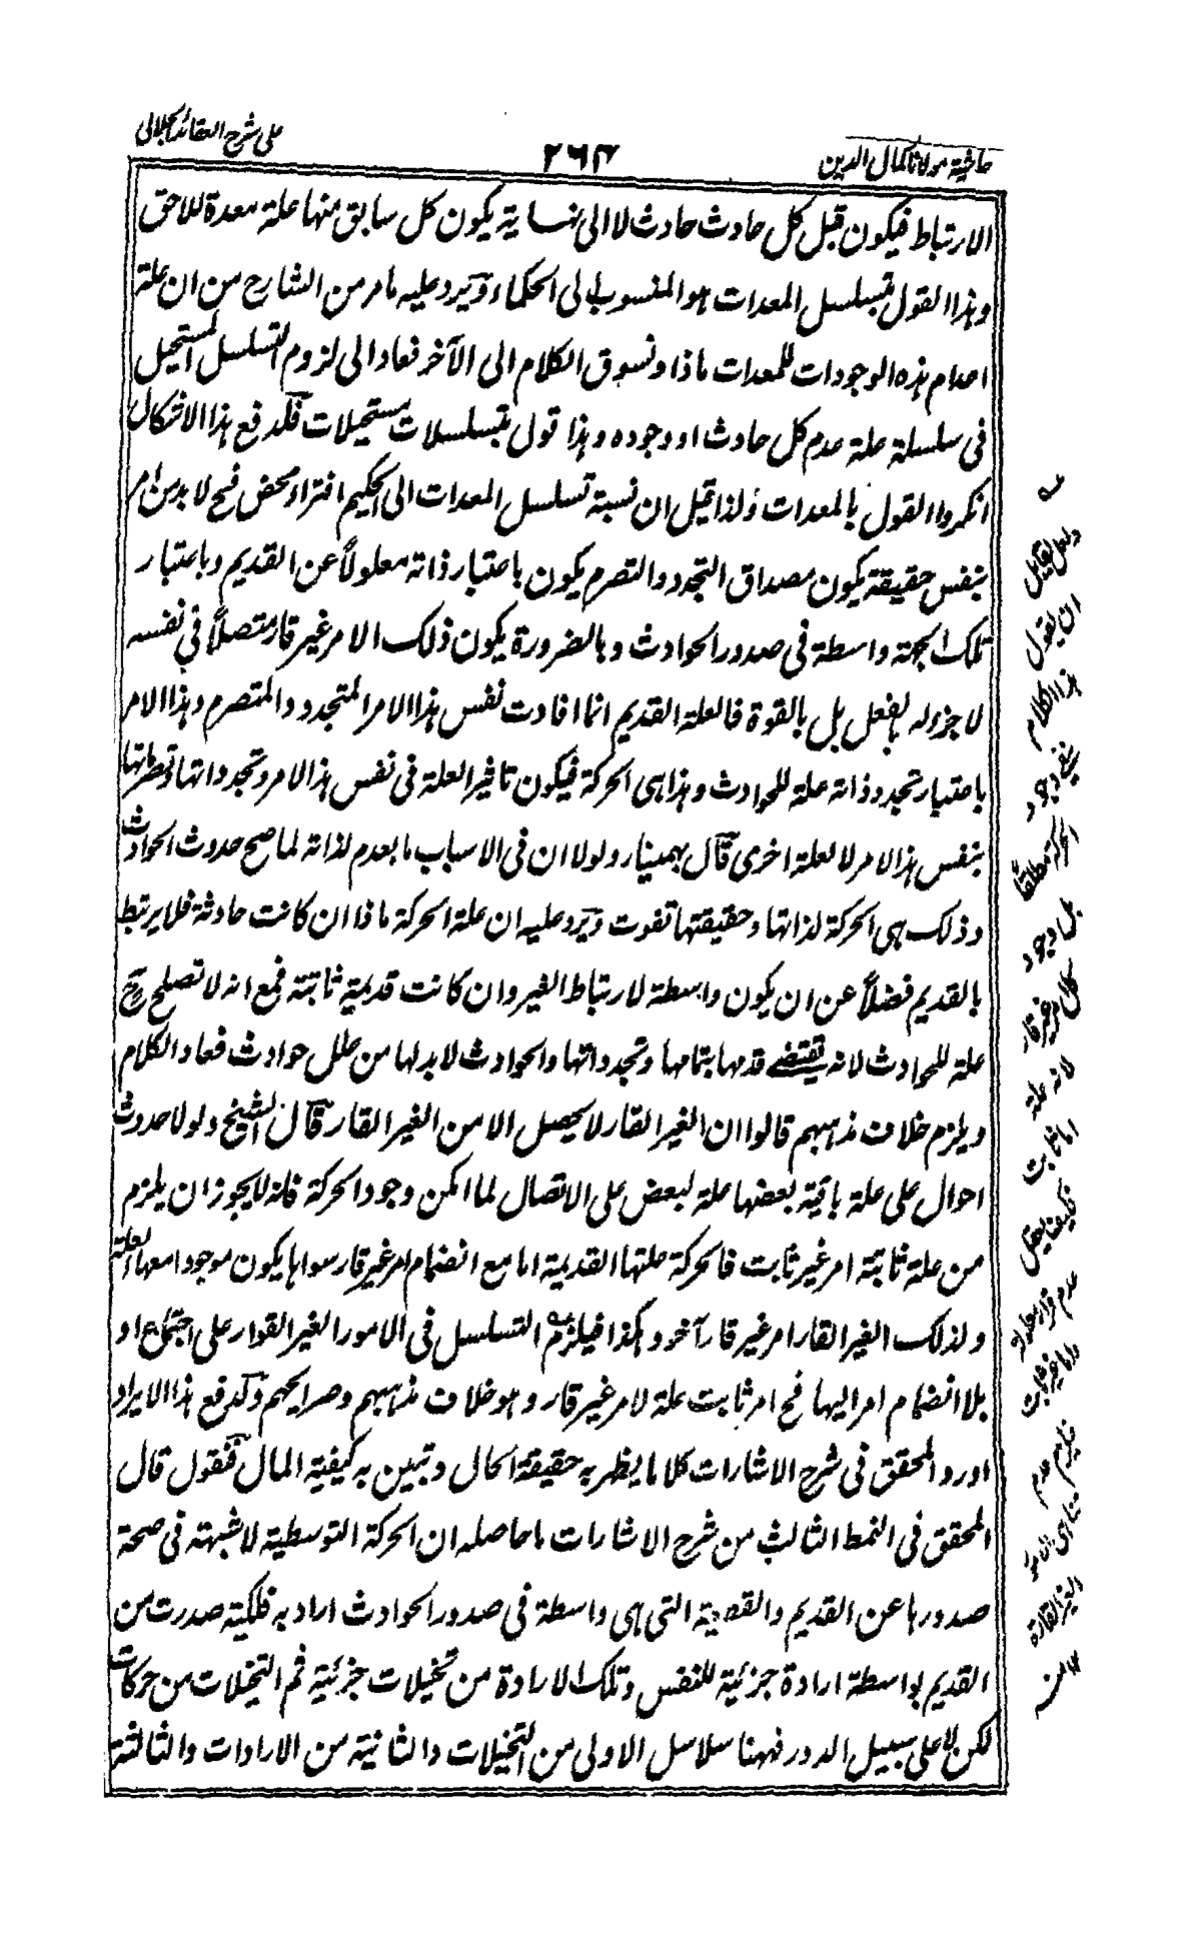 حاشية مولانا كمال الدين
٢٦٤
على شرح العقائد الجلالى
الارتباط فيكون قبل كل حادث حادث لا الى نهاية يكون كل سابق منها علة معدة للاحق
وهذا القول بتسلسل المعدات هو المنسوب الى الحكماء ويرد عليه ما مر من الشارح من ان علة
اعدام هذه الوجودات للمعدات ماذا ونسوق الكلام الى الآخر فعاد الى لزوم التسلسل المستحيل
فى سلسلة علة عدم كل حادث او وجوده وهذا قول بتسلسلات مستحيلات فلدفع هذا الاشكال
انكروا القول بالمعدات ولذا قيل ان نسبة تسلسل المعدات الى الحكيم افتراء محض فح لا بد من امر
بنفس حقيقة يكون مصداق التجدد والتصرم يكون باعتبار ذاته معلولاً عن القديم وباعتبار
تلك الجهة واسطة فى صدور الحوادث وبالضرورة يكون ذلك الامر غير قار متصلاً فى نفسه
لا جزء له بالفعل بل بالقوة فالعلة القديم انما افادت نفس هذا الامر المتجدد والمتصرم وهذا الامر
باعتبار تجدد ذاته علة للحوادث وهذا هى الحركة فيكون تاثير العلة فى نفس هذا الامر وتجدداتها وتصرماتها
بنفس هذا الامر لا لعلة اخرى قال بهمنيار ولولا ان فى الاسباب ما يعدم لذاته لما صح حدوث الحوادث
وذلك هى الحركة لذاتها وحقيقتها تفوت ويرد عليه ان علة الحركة ماذا ان كانت حادثة فلا يرتبط
بالقديم فضلاً عن ان يكون واسطة لارتباط الغير وان كانت قديمة ثابتة فمع انه لا تصلح ح
علة للحوادث لانه يقتضے قدمها بتمامها وتجدداتها والحوادث لا بد لها من علل حوادث فعاد الكلام
ويلزم خلاف مذهبهم قالوا ان الغير القار لا يحصل الا من الغير القار قال الشيخ ولولا حدوث
احوال على علة باقية بعضها علة لبعض على الاتصال لما امكن وجود الحركة فانه لا يجوز ان يلزم
من علة ثابتة امر غير ثابت فالحركة علتها القديمة اما مع انضمام امر غير قار سواها يكون موجودا معها العلة
ولذلك الغير القار امر غير قار آخر وهكذا فيلزم التسلسل فى الامور الغير القوار على اجتماع او
بلا انضمام امر اليها فح امر ثابت علة لامر غير قار وهو خلاف مذهبهم وصرايحهم ولدفع هذا الايراد
اورد المحقق فى شرح الاشارات كلاما يظهر به حقيقة الحال وتبين به كيفية المال فنقول قال
المحقق فى النمط الثالث من شرح الاشارات ما حاصله ان الحركة التوسطية لا شبهة فى صحة
صدورها عن القديم والقطعية التى هى واسطة فى صدور الحوادث اراد به فلكية صدرت من
القديم بواسطة ارادة جزئية للنفس وتلك الارادة من تخيلات جزئية ثم التخيلات من حركات
لكن لا على سبيل الدور فههنا سلاسل الاولى من التخيلات والثانية من الارادات والثالثة
ان يقول
هذا الكلام
وجود
الحركة مطلقاً
بل وجود
كل غير قار
لانه علة
اما ثابت
فكيف يعقل
عدم قرار معلوله
واما غير ثابت
فيلزم عدم
الغير القارة
منه